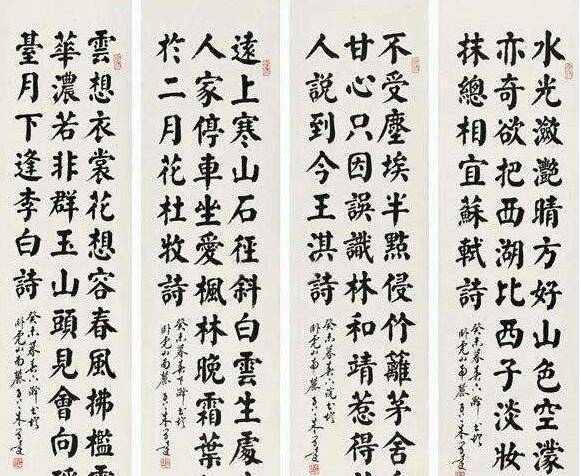 水光瀲灩晴方好山色空濛
亦奇欲把西湖比西子淡妝
抹總相宜蘇軾詩
癸未暮春
臥虎山南麓
不受塵埃半點侵竹籬茅舍
甘心只因誤識林和靖惹得
人說到今王淇詩
癸未暮春
臥虎山南麓
遠上寒山石徑斜白雲生處
人家停車坐愛楓林晚霜葉
於二月花杜牧詩
癸未暮春
臥虎山南麓
雲想衣裳花想容春風拂檻
華濃若非群玉山頭見會向
臺月下逢李白詩
癸未暮春
臥虎山南麓